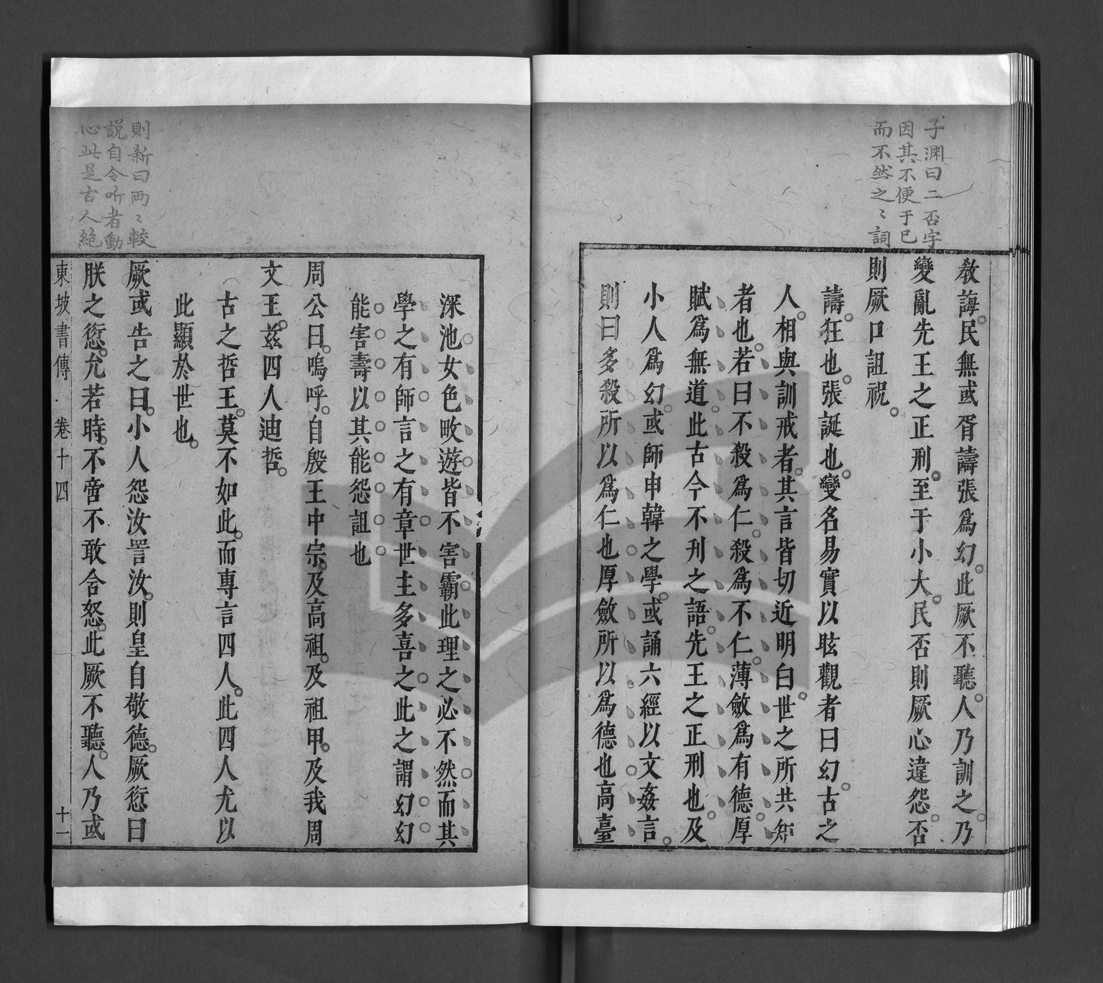 子淵曰二否字
因其不便于已
而不然之〻詞
教誨民無或胥譸張爲幻此厥不聽人乃訓之乃
變亂先王之正刑至于小大民否則厥心違怨否
則厥口詛祝
譸狂也張誕也變名易實以眩觀者曰幻古之
人相與訓戒者其言皆切近明白世之所共知
者也若曰不殺爲仁殺爲不仁薄斂爲有德厚
賦爲無道此古今不刋之語先王之正刑也及
小人爲幻或師申韓之學或誦六經以文姦言
則曰多殺所以爲仁也厚斂所以爲德也高臺
深池女色畋遊皆不害霸此理之必不然而其
學之有師言之有章世主多喜之此之謂幻幻
能害壽以其能怨詛也
周公曰嗚呼自殷王中宗及高祖及祖甲及我周
文王茲四人迪哲
古之哲王莫不如此而專言四人此四人尤以
此顯於世也
則新曰兩〻較
説自令听者動
心此是古人絶
厥或告之曰小人怨汝詈汝則皇自敬德厥愆曰
朕之愆允若時不啻不敢含怒此厥不聽人乃或
東坡書傳 卷十四 十一